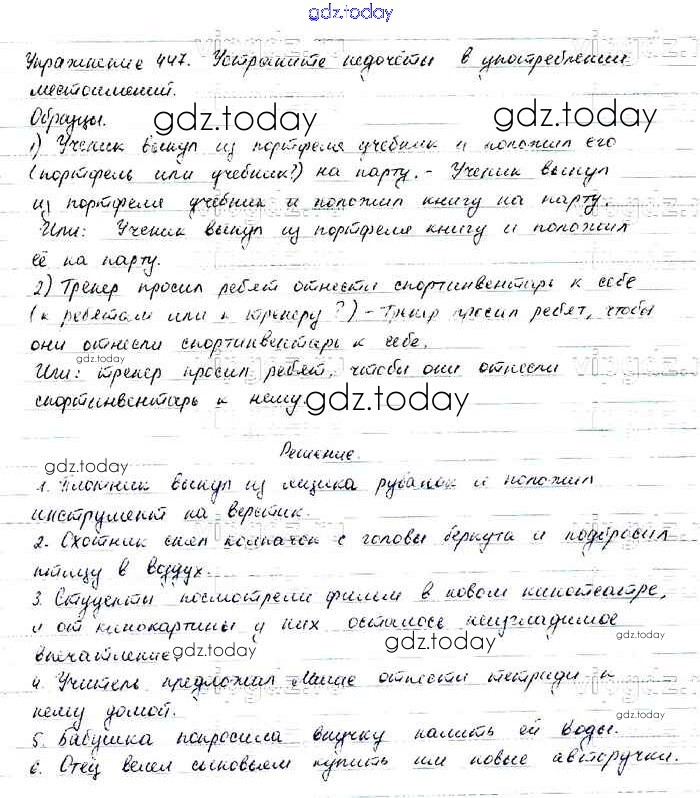 gdz.today
Упражнение 447. Устраните недочёты в употреблении
местоимений.
Образцы.
gdz.today gdz.today
1) Ученик вынул из портфеля учебник и положил его
(портфель или учебник?) на парту. - Ученик вынул
из портфеля учебник и положил книгу на парту.
Или: Ученик вынул из портфеля книгу и положил
её на парту.
2) Тренер просил ребят отнести спортинвентарь к себе
(к ребятам или к тренеру?) - Тренер просил ребят, чтобы
они отнесли спортинвентарь к себе.
gdz.today
Или: тренер просил ребят, чтобы они отнесли
спортинвентарь к нему.
gdz.today
Решение.
gdz.today
1. Плотник вынул из ящика рубанок и положил
инструмент на верстак.
2. Охотник снял колпачок с головы беркута и подбросил
птицу в воздух.
3. Студенты посмотрели фильм в новом кинотеатре,
и от кинокартины у них осталось неизгладимое
впечатление.
gdz.today gdz.today gdz.today
4. Учитель предложил Маше отнести тетради к
нему домой.
gdz.today
5. Бабушка попросила внучку налить ей воды.
6. Отец велел сыновьям купить им новые авторучки.
gdz.today